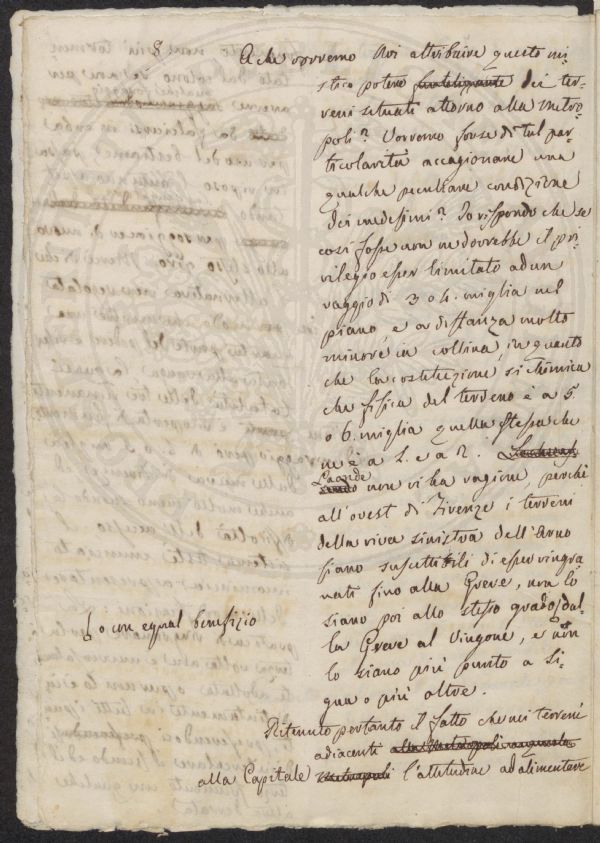 8
A che dovremo Noi attribuire questo mi-
stico potere fertilizzante dei ter-
reni situati attorno alla metro-
poli? Vorremo forse di tal par-
ticolarità accagionare una
qualche peculiare condizione
dei medesimi? Io rispondo che se
così fosse non ne dovrebbe il pri-
vilegio esser limitato ad un
raggio di 3 o 4. miglia nel
piano, e a distanza molto
minore in collina, in quanto
che la costituzione sì chimica
che fisica del terreno è a 5.
o 6. miglia quella stessa che
ne è a 1. e a 2.
Laonde
non vi ha ragione, perchè
all'ovest di Firenze i terreni
della riva sinistra dell'Arno
siano suscettibili di esser ringra-
nati fino alla Greve, non lo
siano poi allo stesso grado dal-
la Greve al Vingone, e non
lo siano più punto a Si-
gna o più oltre.
o con egual benefizio
Ritenuto pertanto il fatto che nei terreni
adiacenti alla Metropoli
alla Capitale Metropoli l'attitudine ad alimentare